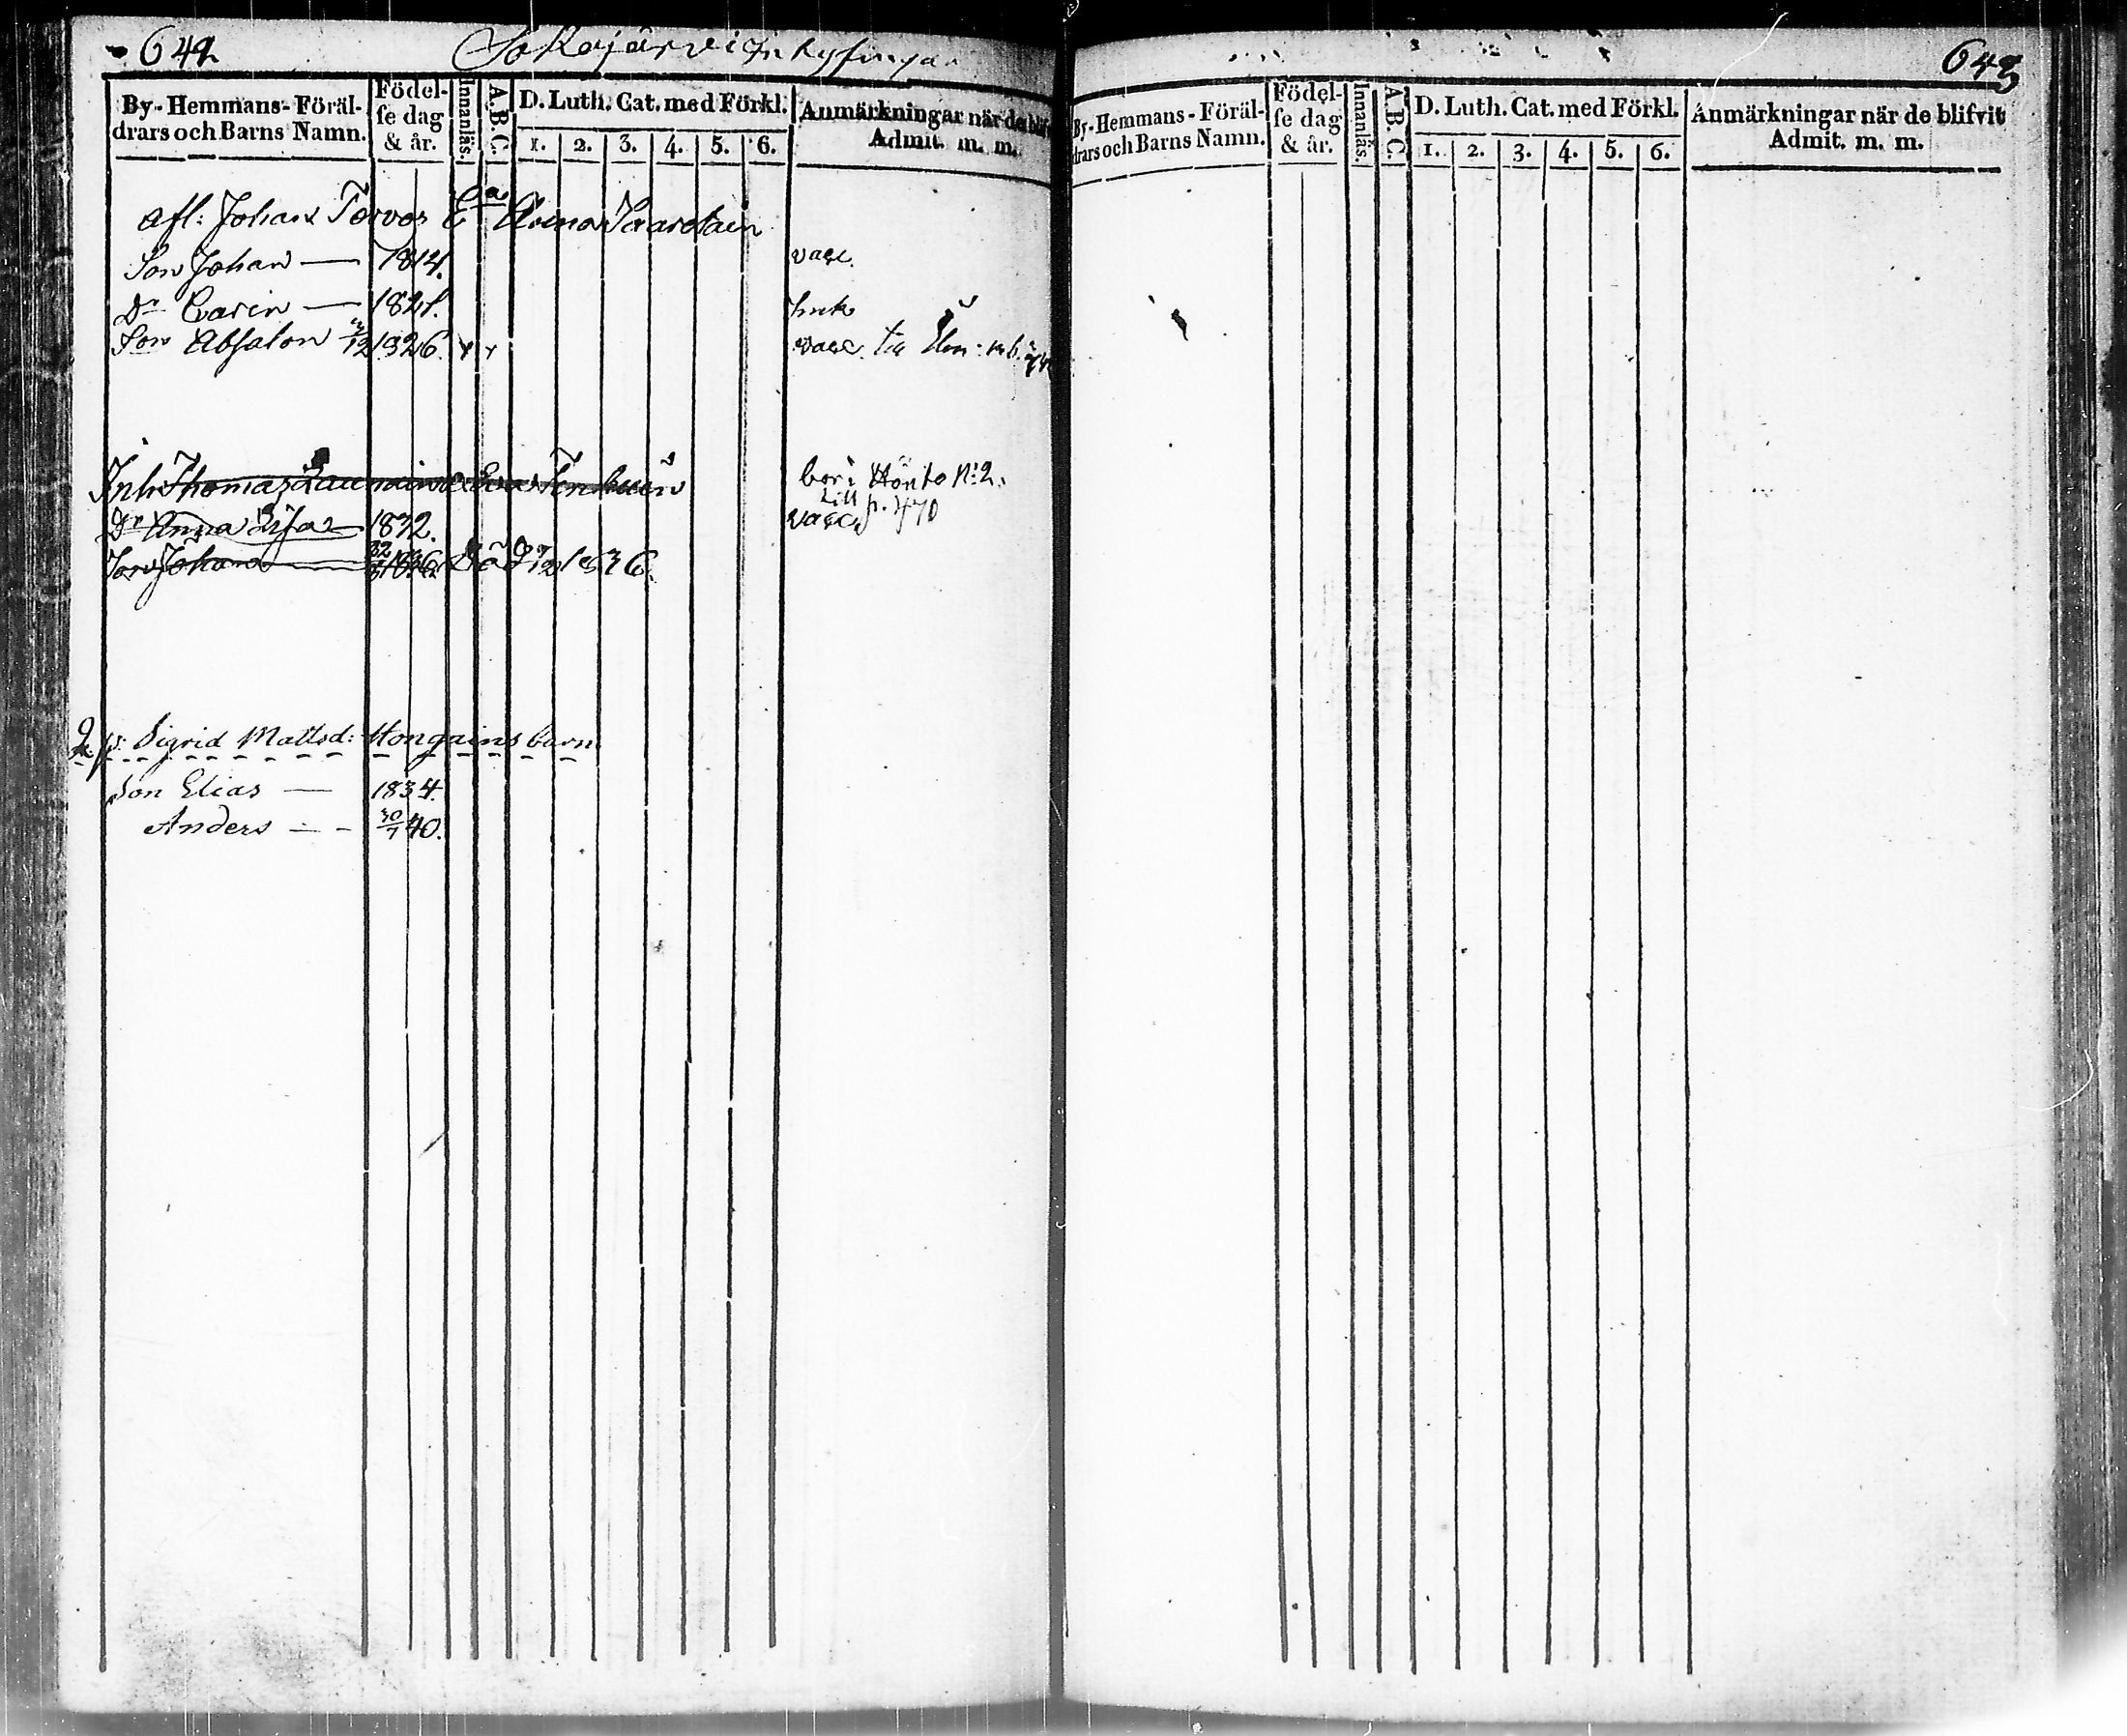 642
Sokojärvi Inhysingar
By-Hemmans-Föräl-drars och Barns Namn.
Födel-se dag & år.
Innanläs.
A.B.C.
D. Luth. Cat. med Förkl.
1. 2. 3. 4. 5. 6.
Anmärkningar när de blif
Admit. m. m.
afl: Johan Torvos Ea Anna
Son Johan — 1814. vacc.
Dr Carin — 1821.
Son Absalon 1826. vacc.
Inh Thomas
bor i Hönto N:2.
till p. 470
Dr Anna Lisa 1832. vacc.
Son Johan Död 1836.
Q: p: Sigrid Mattsd: Hongains barn
Son Elias — 1834.
Anders — 30/7 40.
643
By-Hemmans-Föräl-
drars och Barns Namn.
Födel-se dag & år.
Innanläs.
A.B.C.
D. Luth. Cat. med Förkl.
1. 2. 3. 4. 5. 6.
Anmärkningar när de blifvit
Admit. m. m.